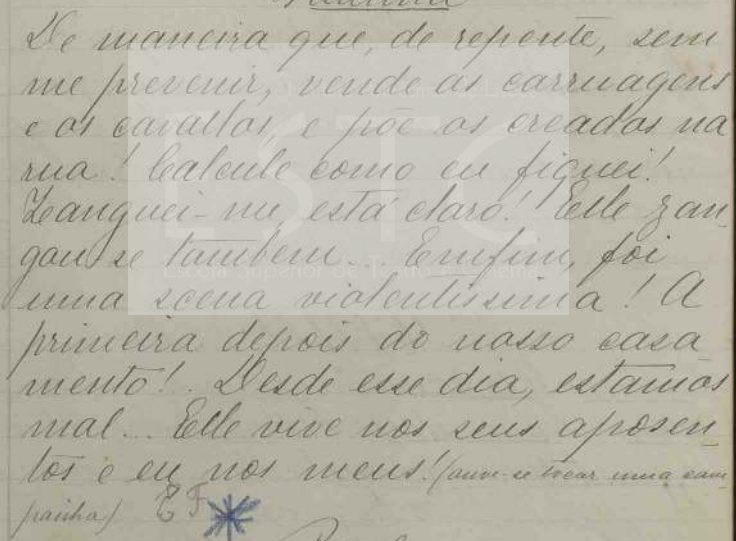 De maneira que, de repente, sem
me prevenir, vende as carruagens
e os cavallos, e põe os creados na
rua! Calcule como eu fiquei!
Zanguei-me, está claro! Elle zan
gou se tambem... Emfim, foi
uma scena violentissima! A
primeira depois do nosso casa
mento!.. Desde esse dia, estamos
mal... Elle vive nos seus aposen
tos e eu nos meus! (ouve-se tocar uma cam
painha) E F
ESTC
Escola Superior de Teatro e Cinema